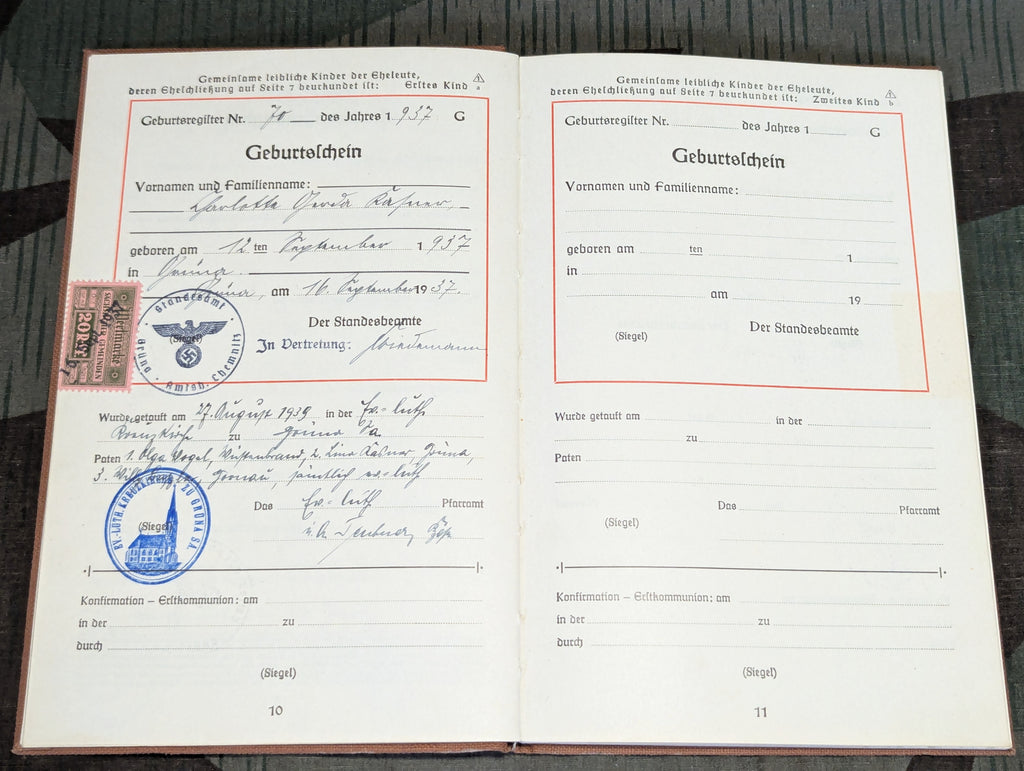 Gemeinsame leibliche Kinder der Eheleute,
deren Eheschließung auf Seite 7 beurkundet ist: Erstes Kind a
Geburtsregister Nr. 70 des Jahres 1 937 G
Geburtsschein
Vornamen und Familienname:
Charlotte Gerda Käsner,
geboren am 12 ten September 1 937
in Grüna.
Grüna, am 16. September 19 37.
Der Standesbeamte
In Vertretung: Wiedemann
(Siegel)
Standesamt Grüna Amtsh. Chemnitz
Wertmarke
SÄCHSISCHER GEMEINDEN
20
Wurde getauft am 27. August 1939 in der Ev.-luth
Kreuzkirche zu Grüna Sa.
Paten 1. Olga Vogel, Wüstenbrand, 2. Lina Käsner, Grüna,
3. Gronau, sämtlich ev.-luth
Das Ev.-luth Pfarramt
(Siegel)
EV.-LUTH. KREUZKIRCHE ZU GRÜNA SA.
Konfirmation – Erstkommunion: am
in der zu
durch
(Siegel)
10
Gemeinsame leibliche Kinder der Eheleute,
deren Eheschließung auf Seite 7 beurkundet ist: Zweites Kind b
Geburtsregister Nr. des Jahres 1 G
Geburtsschein
Vornamen und Familienname:
geboren am ten 1
in
am 19
Der Standesbeamte
(Siegel)
Wurde getauft am in der
zu
Paten
Das Pfarramt
(Siegel)
Konfirmation – Erstkommunion: am
in der zu
durch
(Siegel)
11